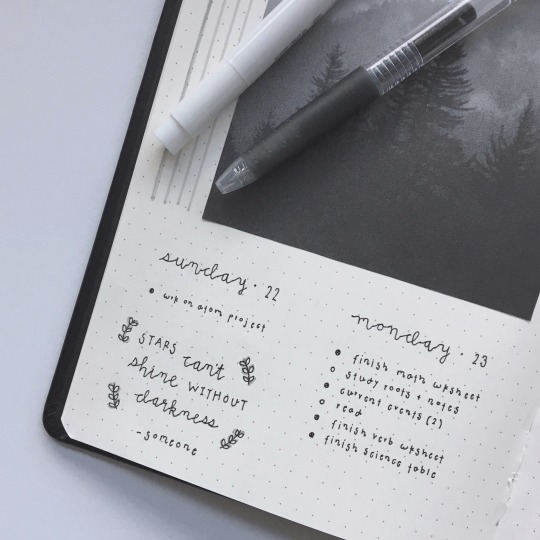 sunday · 22
wrk on atom project
STARS can't
shine WITHOUT
darkness
-someone
monday · 23
finish math wksheet
study roots + notes
current events (2)
read
finish verb wksheet
finish science table